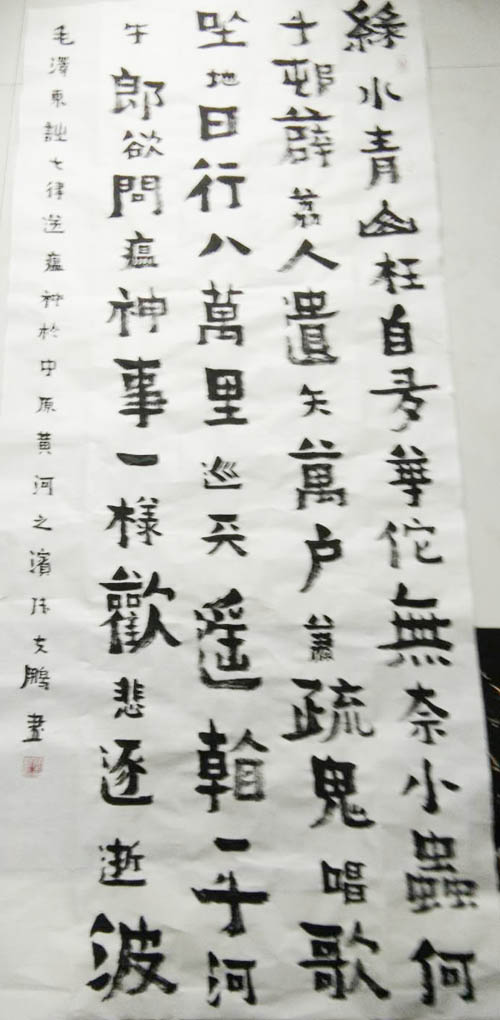 綠水青山枉自多華佗無奈小蟲何
千邨薜荔人遺矢萬户蕭疏鬼唱歌
坐地日行八萬里巡天遥一千河
牛郎欲問瘟神事一樣歡悲逐逝波
毛澤東詩七律送瘟神於中原黄河之濱友鵬書